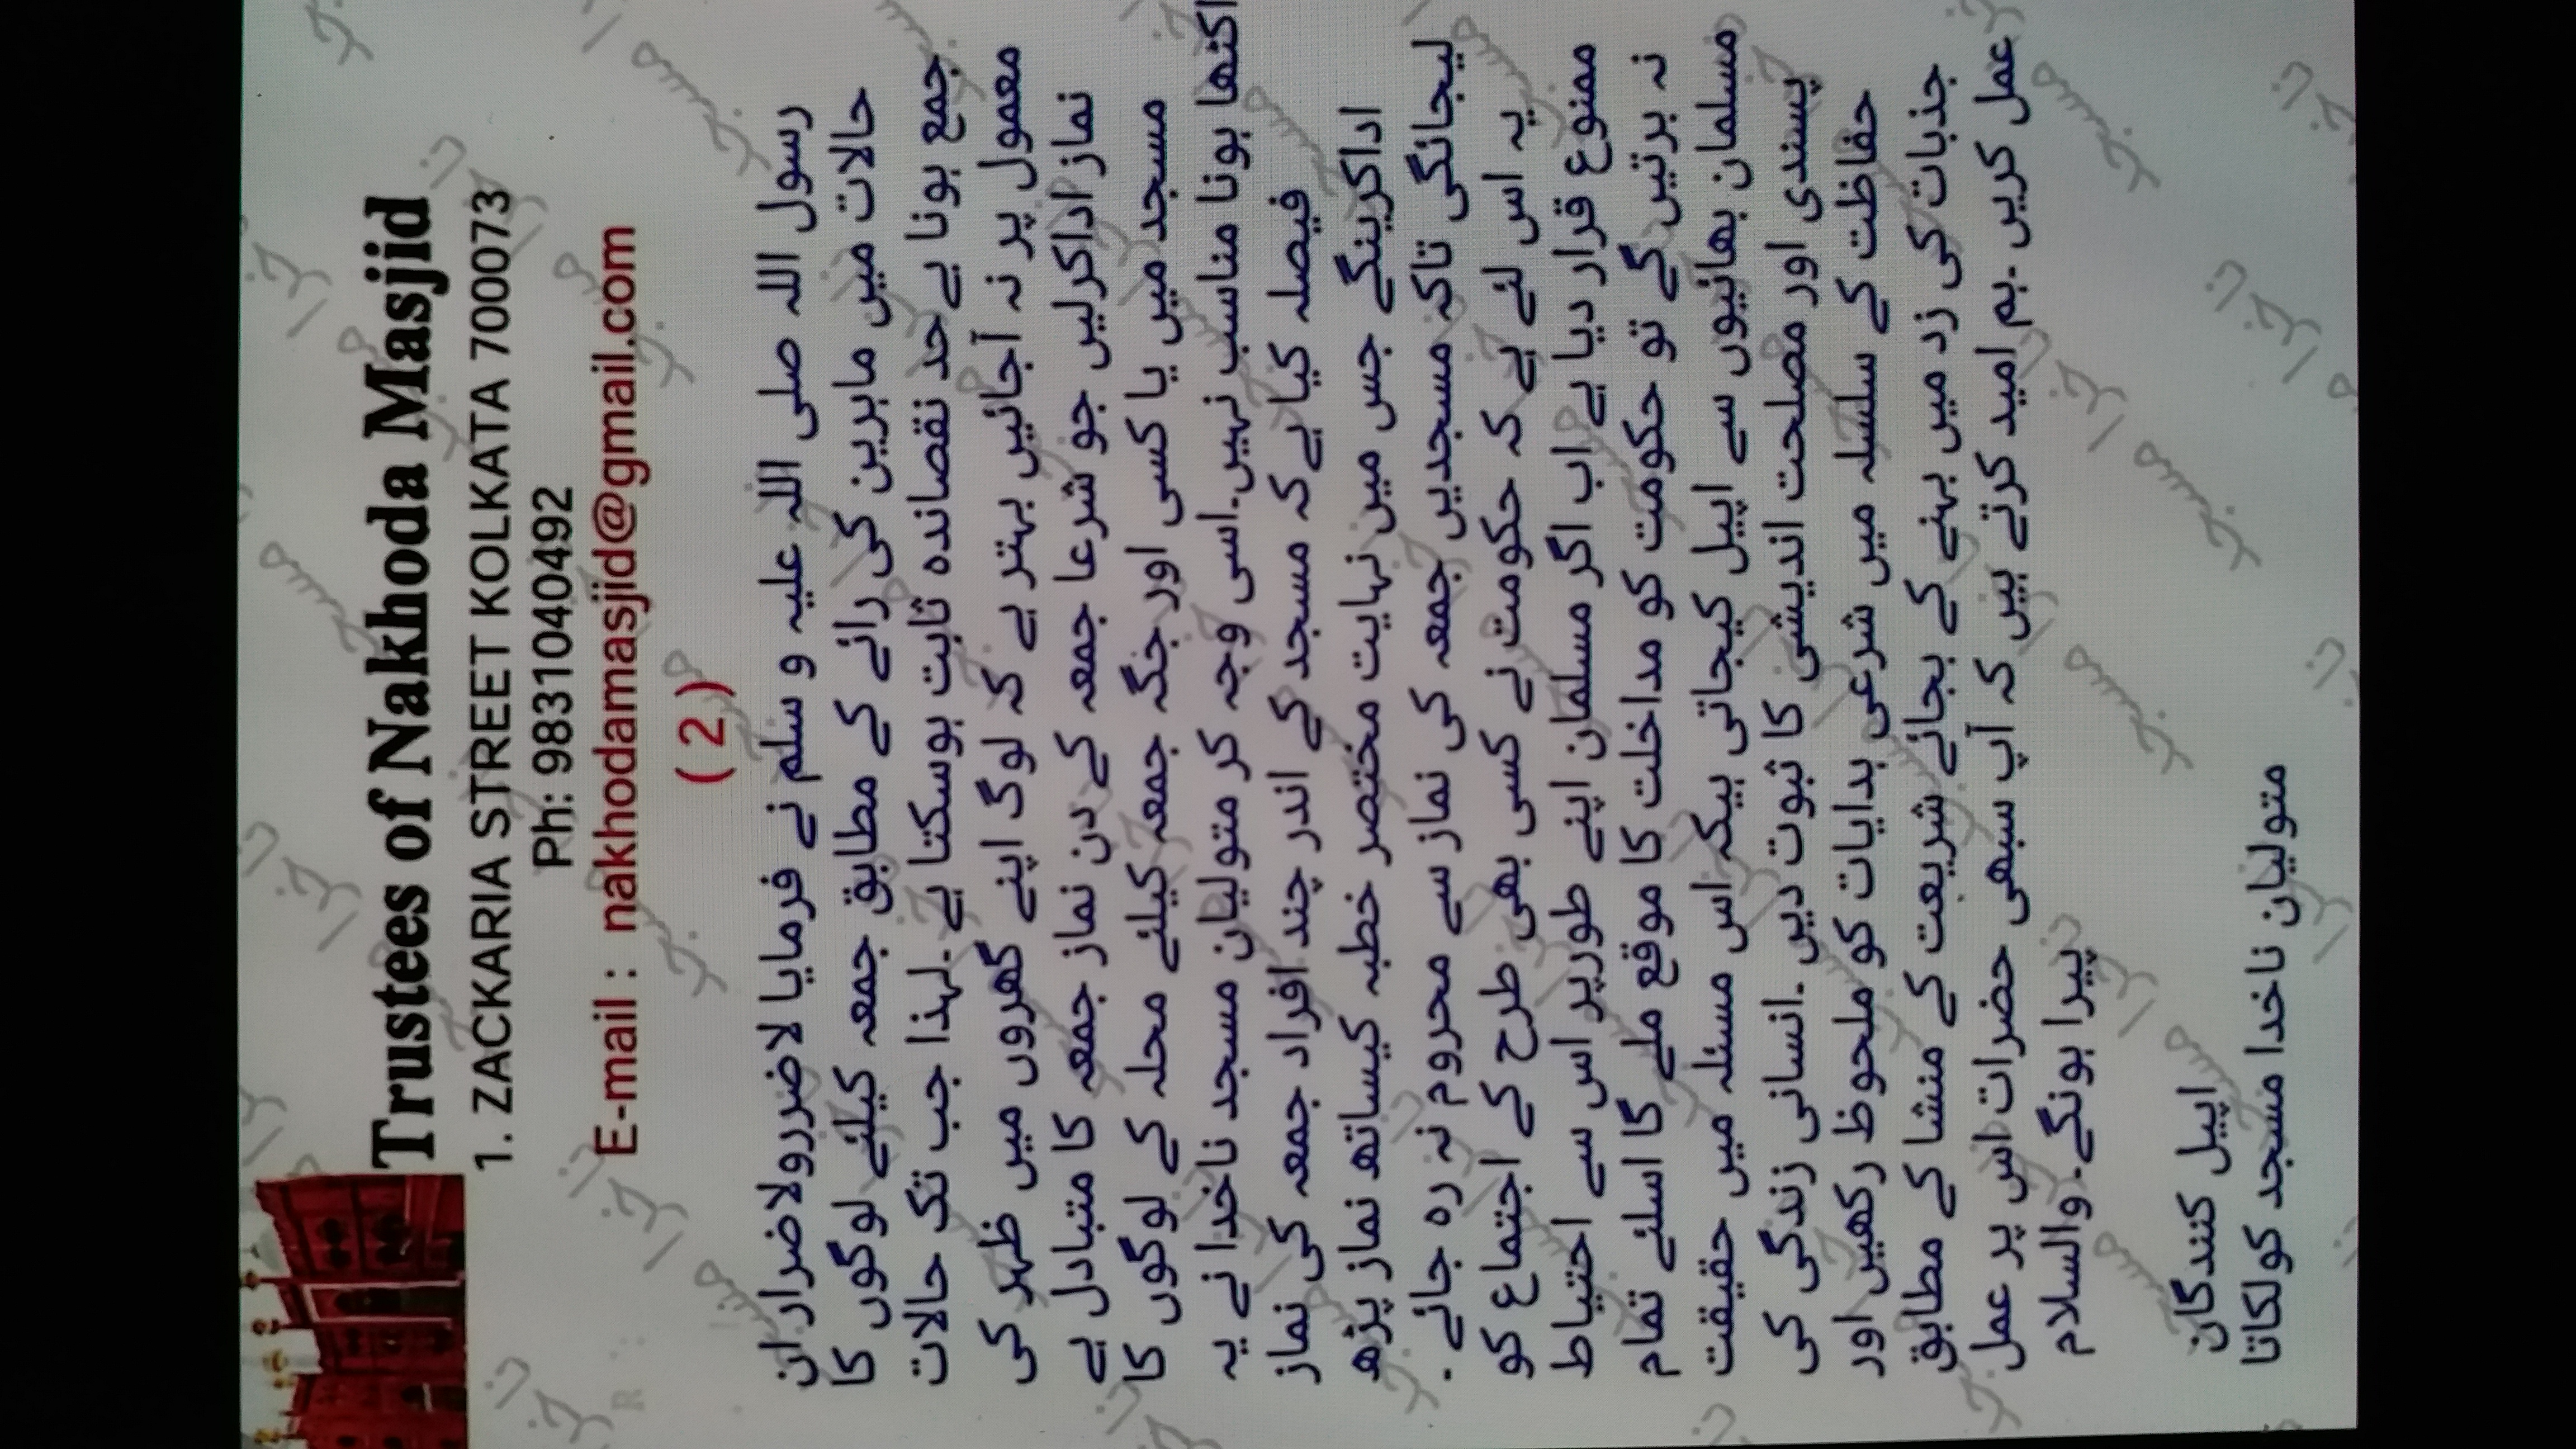 Trustees of Nakhoda Masjid
1. ZACKARIA STREET KOLKATA 700073
Ph: 9831040492
E-mail : nakhodamasjid@gmail.com
( 2 )
رسول اللہ صلی اللہ علیہ و سلم نے فرمایا لاضررولاضرار ان
حالات میں ماہرین کی رائے کے مطابق جمعہ کیلئے لوگوں کا
جمع ہونا بےحد نقصاندہ ثابت ہوسکتا ہے ۔لہذا جب تک حالات
معمول پر نہ آجائیں بہتر ہے کہ لوگ اپنے گھروں میں ظہر کی
نماز اداکرلیں جو شرعا جمعہ کے دن نماز جمعہ کا متبادل ہے
مسجد میں یا کسی اورجگہ جمعہ کیلئے محلہ کے لوگوں کا
اکٹھا ہونا مناسب نہیں۔اسی وجہ کر متولیان مسجد ناخدا نے یہ
فیصلہ کیا ہےکہ مسجد کے اندر چند افراد جمعہ کی نماز
اداکرینگے جس میں نہایت مختصر خطبہ کیساتھ نماز پڑھ
لیجائگی تاکہ مسجدیں جمعہ کی نماز سے محروم نہ رہ جائے ۔
یہ اس لئے ہے کہ حکومت نے کسی بھی طرح کے اجتماع کو
ممنوع قرار دیا ہے اب اگر مسلمان اپنے طورپر اس سے احتیاط
نہ برتیں گے تو حکومت کو مداخلت کا موقع ملے گا اسلئے تمام
مسلمان بھائیوں سے اپیل کیجاتی ہیکہ اس مسئلہ میں حقیقت
پسندی اور مصلحت اندیشی کا ثبوت دیں ۔انسانی زندگی کی
حفاظت کے سلسلہ میں شرعی ہدایات کو ملحوظ رکھیں اور
جذبات کی زد میں بہنے کے بجائے شریعت کے منشا کے مطابق
عمل کریں ۔ہم امید کرتے ہیں کہ آپ سبھی حضرات اس پر عمل
پیرا ہونگے۔ والسلام
اپیل کنندگان
متولیان ناخدا مسجد کولکاتا